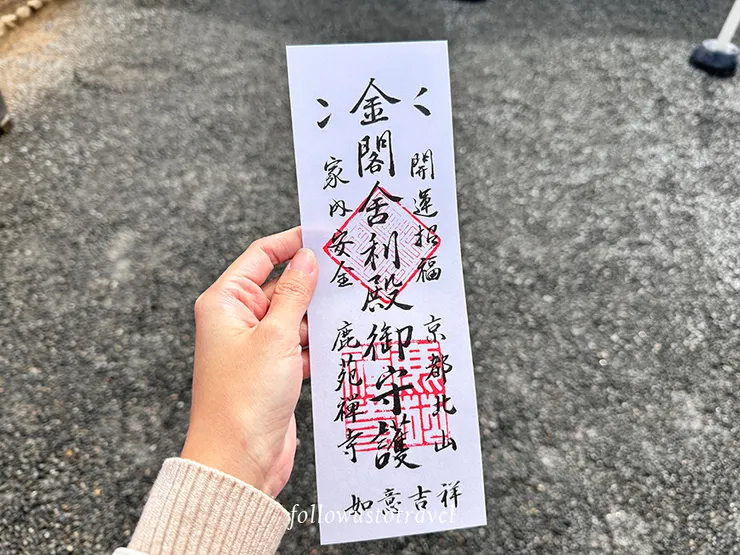 金閣舎利殿御守護
開運招福
京都北山
家内安全
鹿苑禅寺
如意吉祥
followustotravel